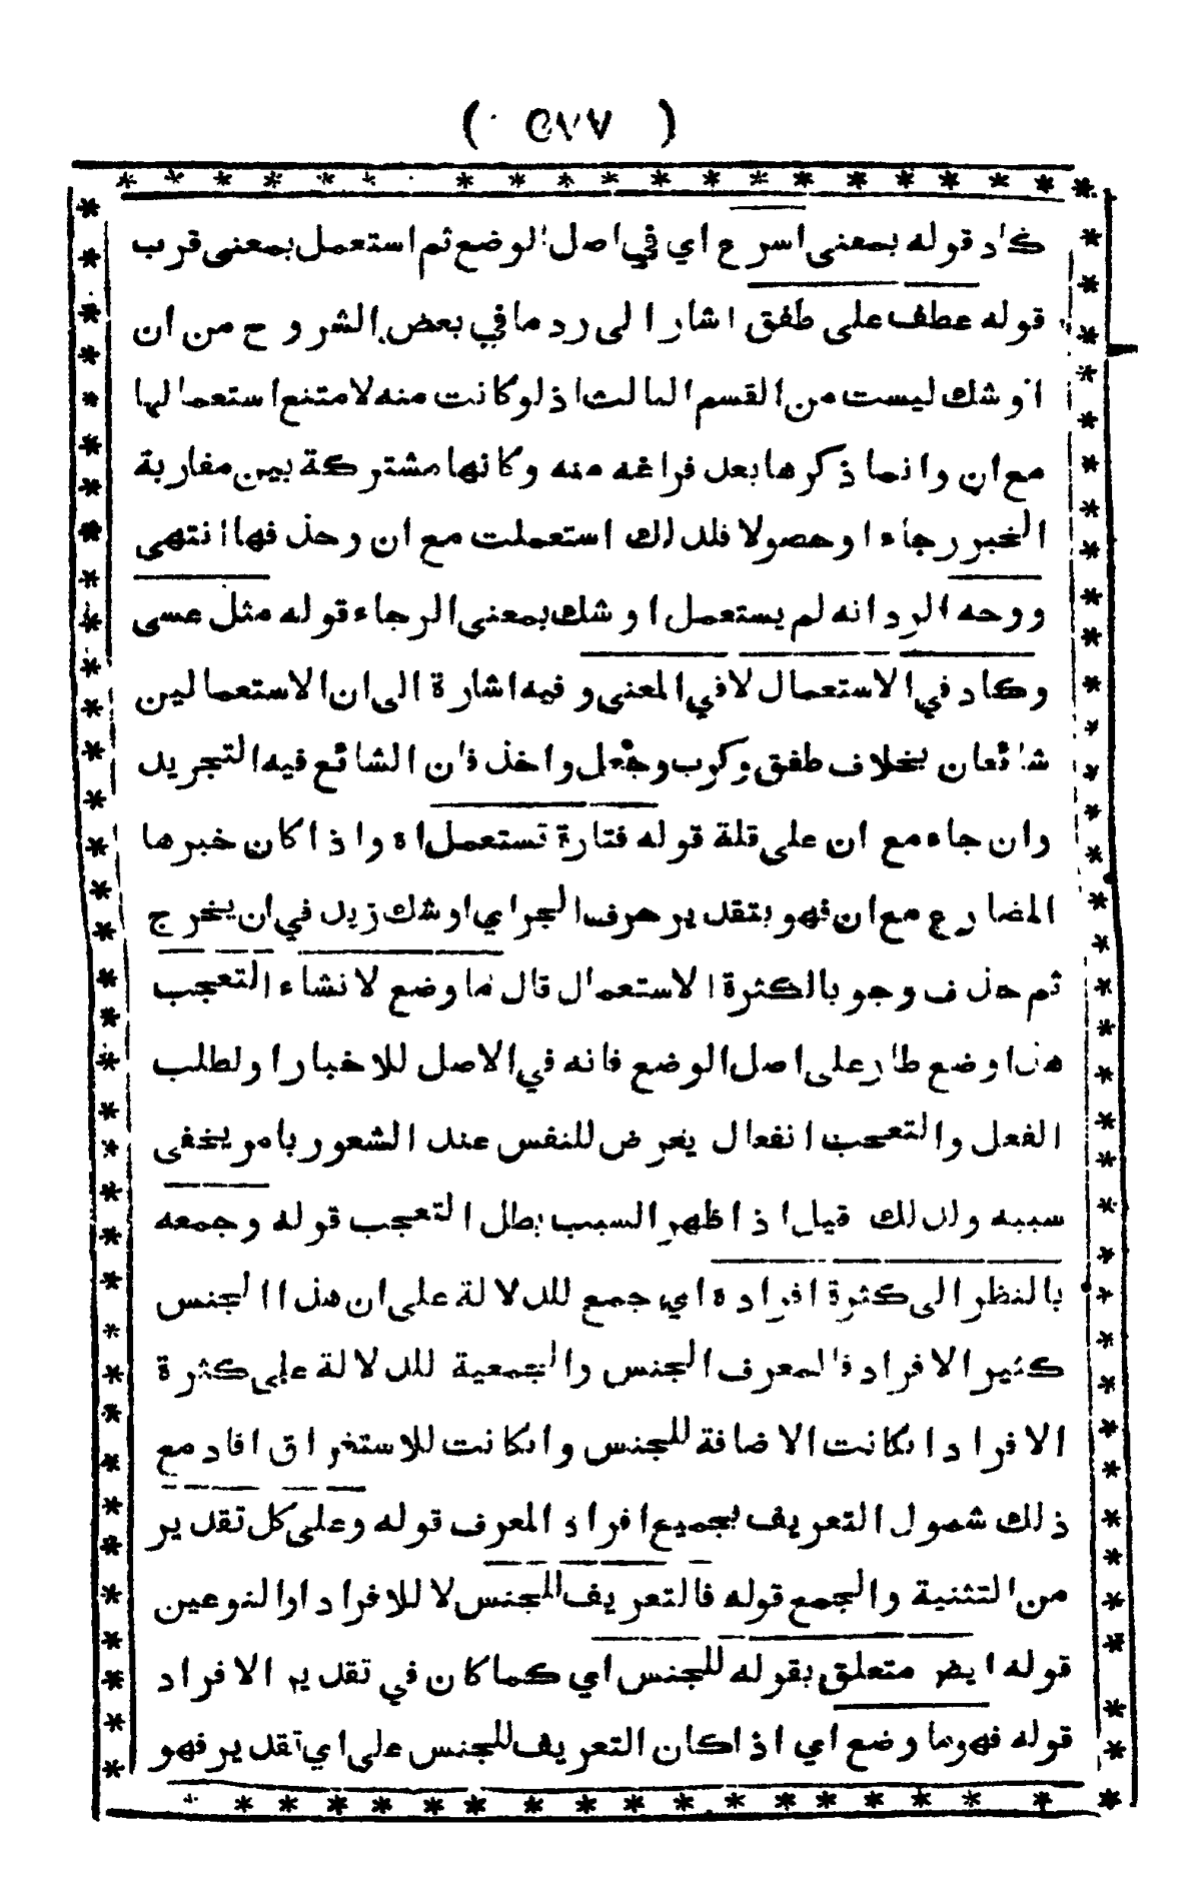 ( ٥٧٧ )
كاد قوله بمعنى اسرع اي في اصل الوضع ثم استعمل بمعنى قرب
قوله عطف على طفق اشار الى رد ما في بعض الشروح من ان
اوشك ليست من القسم الثالث اذ لو كانت منه لامتنع استعمالها
مع ان وانما ذكرها بعد فراغه منه وكانها مشتركة بين مقاربة
الخبر رجاء او حصولا فلذلك استعملت مع ان وحذفها انتهى
ووجه الرد انه لم يستعمل اوشك بمعنى الرجاء قوله مثل عسى
وكاد في الاستعمال لا في المعنى وفيه اشارة الى ان الاستعمالين
شائعان بخلاف طفق وكرب وجعل واخذ فان الشائع فيه التجريد
وان جاء مع ان على قلة قوله فتارة تستعمل اه واذا كان خبرها
المضارع مع ان فهو بتقدير حرف الجر اي اوشك زيد في ان يخرج
ثم حذف وجوبا لكثرة الاستعمال قال ما وضع لانشاء التعجب
هذا وضع طار على اصل الوضع فانه في الاصل للاخبار او لطلب
الفعل والتعجب انفعال يعرض للنفس عند الشعور بامر يخفى
سببه ولذلك قيل اذا ظهر السبب بطل التعجب قوله وجمعه
بالنظر الى كثرة افراده اي جمع للدلالة على ان هذا الجنس
كثير الافراد فالمعرف الجنس والجمعية للدلالة على كثرة
الافراد انكانت الاضافة للجنس وانكانت للاستغراق افاد مع
ذلك شمول التعريف لجميع افراد المعرف قوله وعلى كل تقدير
من التثنية والجمع قوله فالتعريف للجنس لا للافراد او النوعين
قوله ايضر متعلق بقوله للجنس اي كما كان في تقديم الافراد
قوله فهو ما وضع اي اذا كان التعريف للجنس على اي تقدير فهو